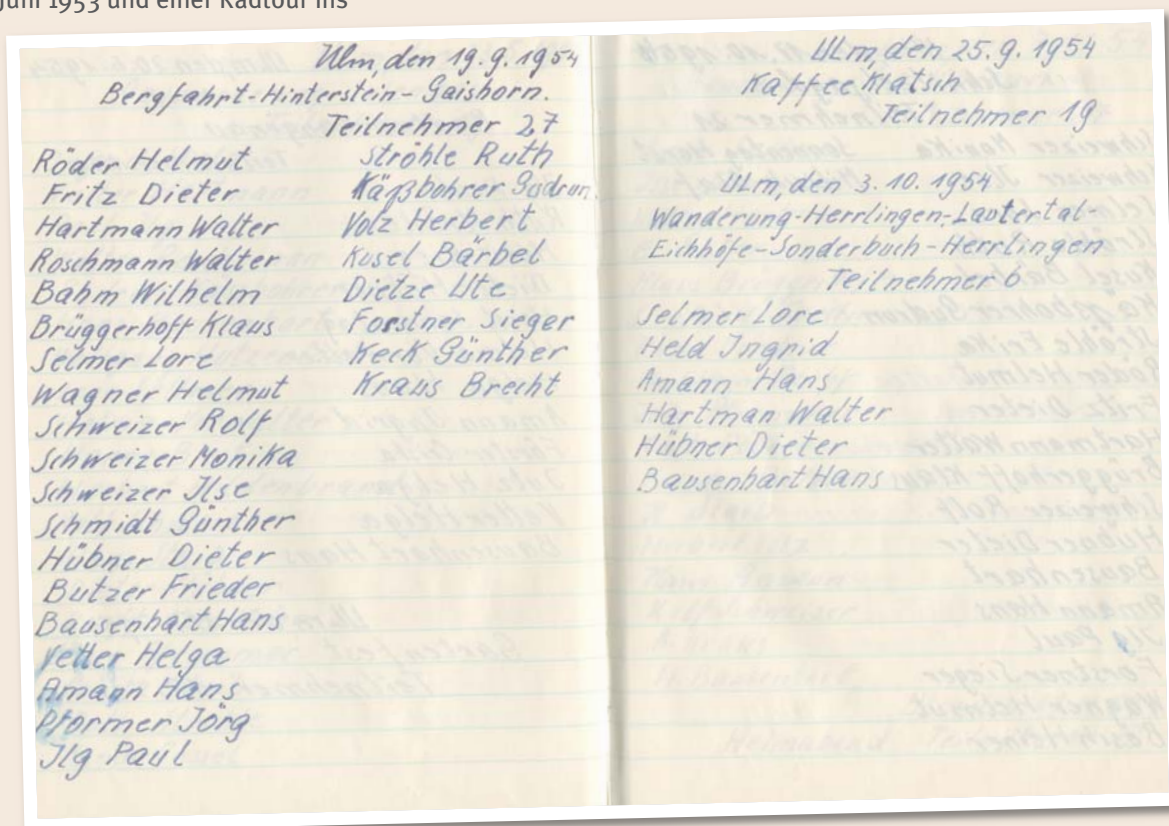 Juni 1953 und einer Radtour ins
Ulm, den 19.9.1954
Bergfahrt-Hinterstein-Gaishorn.
Teilnehmer 27
Röder Helmut
Fritz Dieter
Hartmann Walter
Roschmann Walter
Bahm Wilhelm
Brüggerhoff Klaus
Selmer Lore
Wagner Helmut
Schweizer Rolf
Schweizer Monika
Schweizer Ilse
Schmidt Günther
Hübner Dieter
Butzer Frieder
Bausenhart Hans
Vetter Helga
Amann Hans
Pformer Jörg
Ilg Paul
Ströhle Ruth
Käßbohrer Gudrun
Volz Herbert
Kusel Bärbel
Dietze Ute
Forstner Sieger
Keck Günther
Kraus Brecht
Ulm, den 25.9.1954
Kaffee Klatsch
Teilnehmer 19
Ulm, den 3.10.1954
Wanderung-Herrlingen-Lautertal-
Eichhöfe-Sonderbuch-Herrlingen
Teilnehmer 6
Selmer Lore
Held Ingrid
Amann Hans
Hartman Walter
Hübner Dieter
Bausenhart Hans